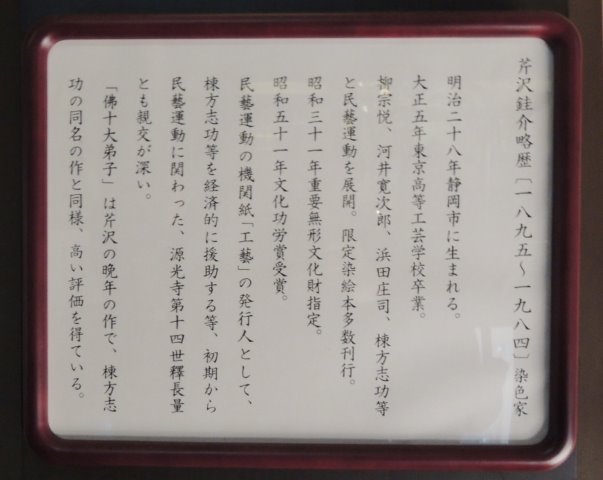 芹沢銈介略歴〔一八九五〜一九八四〕染色家
明治二十八年静岡市に生まれる。
大正五年東京高等工芸学校卒業。
柳宗悦、河井寛次郎、浜田庄司、棟方志功等
と民藝運動を展開。限定染絵本多数刊行。
昭和三十一年重要無形文化財指定。
昭和五十一年文化功労賞受賞。
民藝運動の機関紙「工藝」の発行人として、
棟方志功等を経済的に援助する等、初期から
民藝運動に関わった、源光寺第十四世釋長量
とも親交が深い。
「佛十大弟子」は芹沢の晩年の作で、棟方志
功の同名の作と同様、高い評価を得ている。